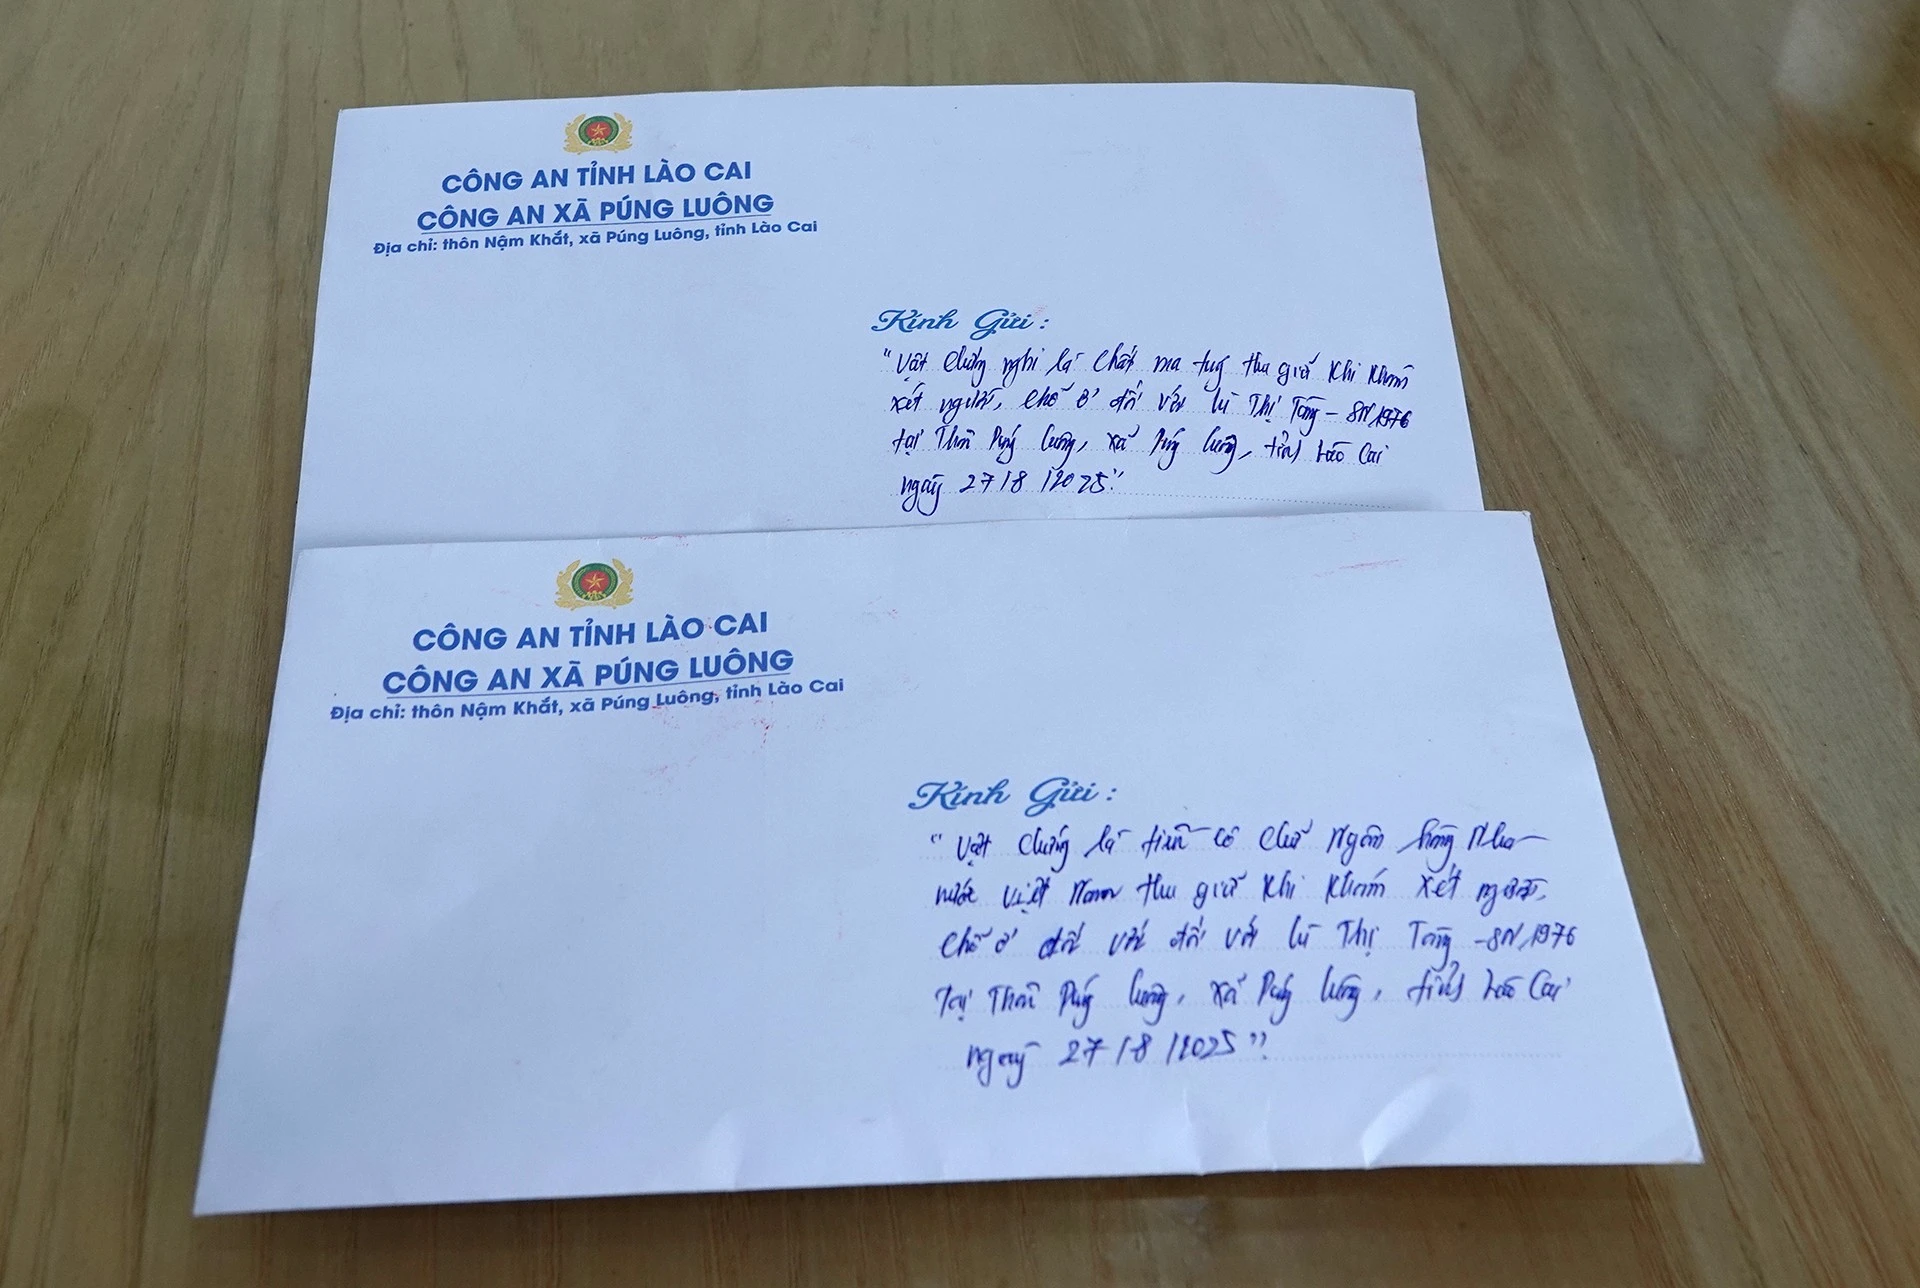 CÔNG AN TỈNH LÀO CAI
CÔNG AN XÃ PÚNG LUÔNG
Địa chỉ: thôn Nậm Khắt, xã Púng Luông, tỉnh Lào Cai
Kính Gửi :
"Vật chứng nghi là chất ma túy thu giữ khi khám
xét người, chỗ ở đối với Lù Thị Tông - SN 1976
tại Thôn Púng Luông, xã Púng Luông, tỉnh Lào Cai
ngày 27/8/2025"
CÔNG AN TỈNH LÀO CAI
CÔNG AN XÃ PÚNG LUÔNG
Địa chỉ: thôn Nậm Khắt, xã Púng Luông, tỉnh Lào Cai
Kính Gửi :
"Vật chứng là tiền có chữ Ngân hàng Nhà
nước Việt Nam thu giữ khi khám xét người,
chỗ ở đối với đối với Lù Thị Tông - SN 1976
Tại Thôn Púng Luông, xã Púng Luông, tỉnh Lào Cai
ngày 27/8/2025"